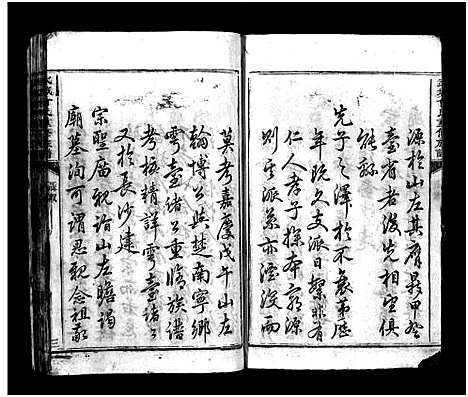 源於山左其膺最甲登
臺省者後先相望俱
能躰
先子之澤於不衰第歷
年既久支派日繁非有
仁人孝子探本窮源
則宗派幾亦湮沒而
莫考嘉慶戊午山左
翰博公與楚南寧鄉
雩臺諸公重脩族譜
考核精詳雩臺諸公
又於長沙建
宗聖廟親詣山左瞻謁
廟墓洵可謂思親念祖敬